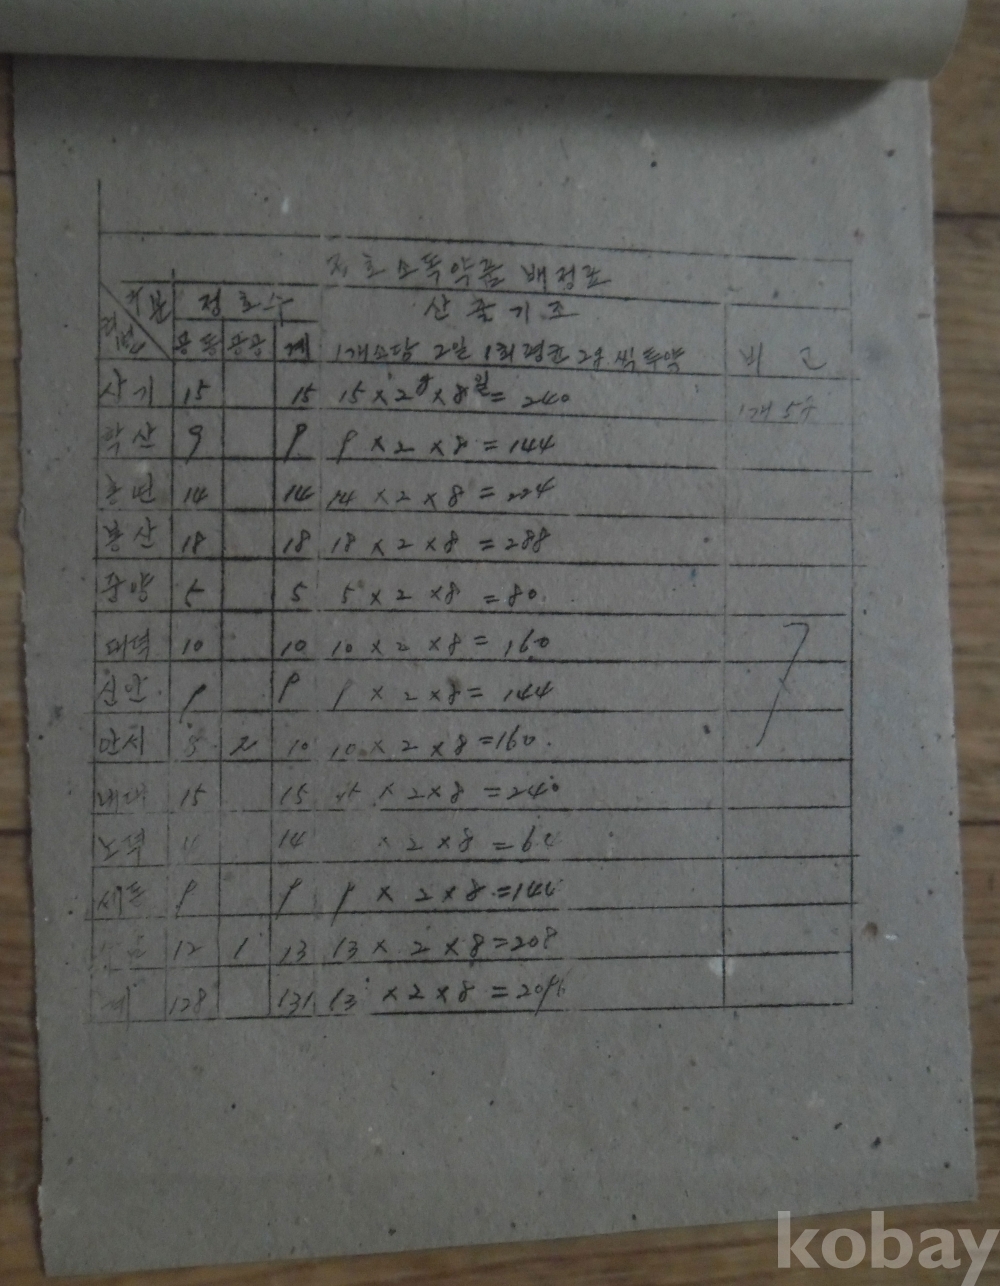 정호소독약품 배정표
구분 정호수 산출기초
리별 공동 공공 계 1개소당 2일 1회 평균 2g씩 투약 비고
사기 15 15 15×2g×8월=240
학산 9 9 9×2×8=144
14 14 14×2×8=224
봉산 18 18 18×2×8=288
중앙 5 5 5×2×8=80
대덕 10 10 10×2×8=160
신안 9 9 9×2×8=144
안시 2 10 10×2×8=160
15 15 15×2×8=240
노덕 14 ×2×8=64
세동 9 9 9×2×8=144
12 1 13 13×2×8=208
계 128 131 ×2×8=2096
kobay